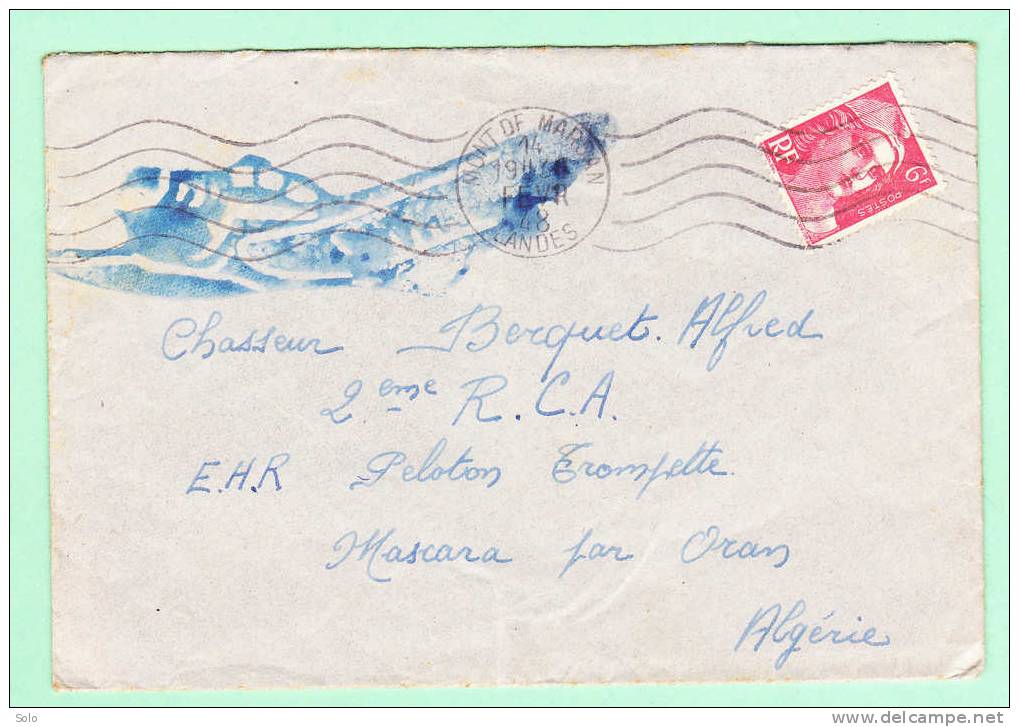 MONT DE MARSAN
14
19
48
LANDES
RF
6F
POSTES
Chasseur Berquet. Alfred
2eme R.C.A.
E.H.R Peloton Trompette.
Mascara par Oran
Algérie
Solo
www.delcampe.net